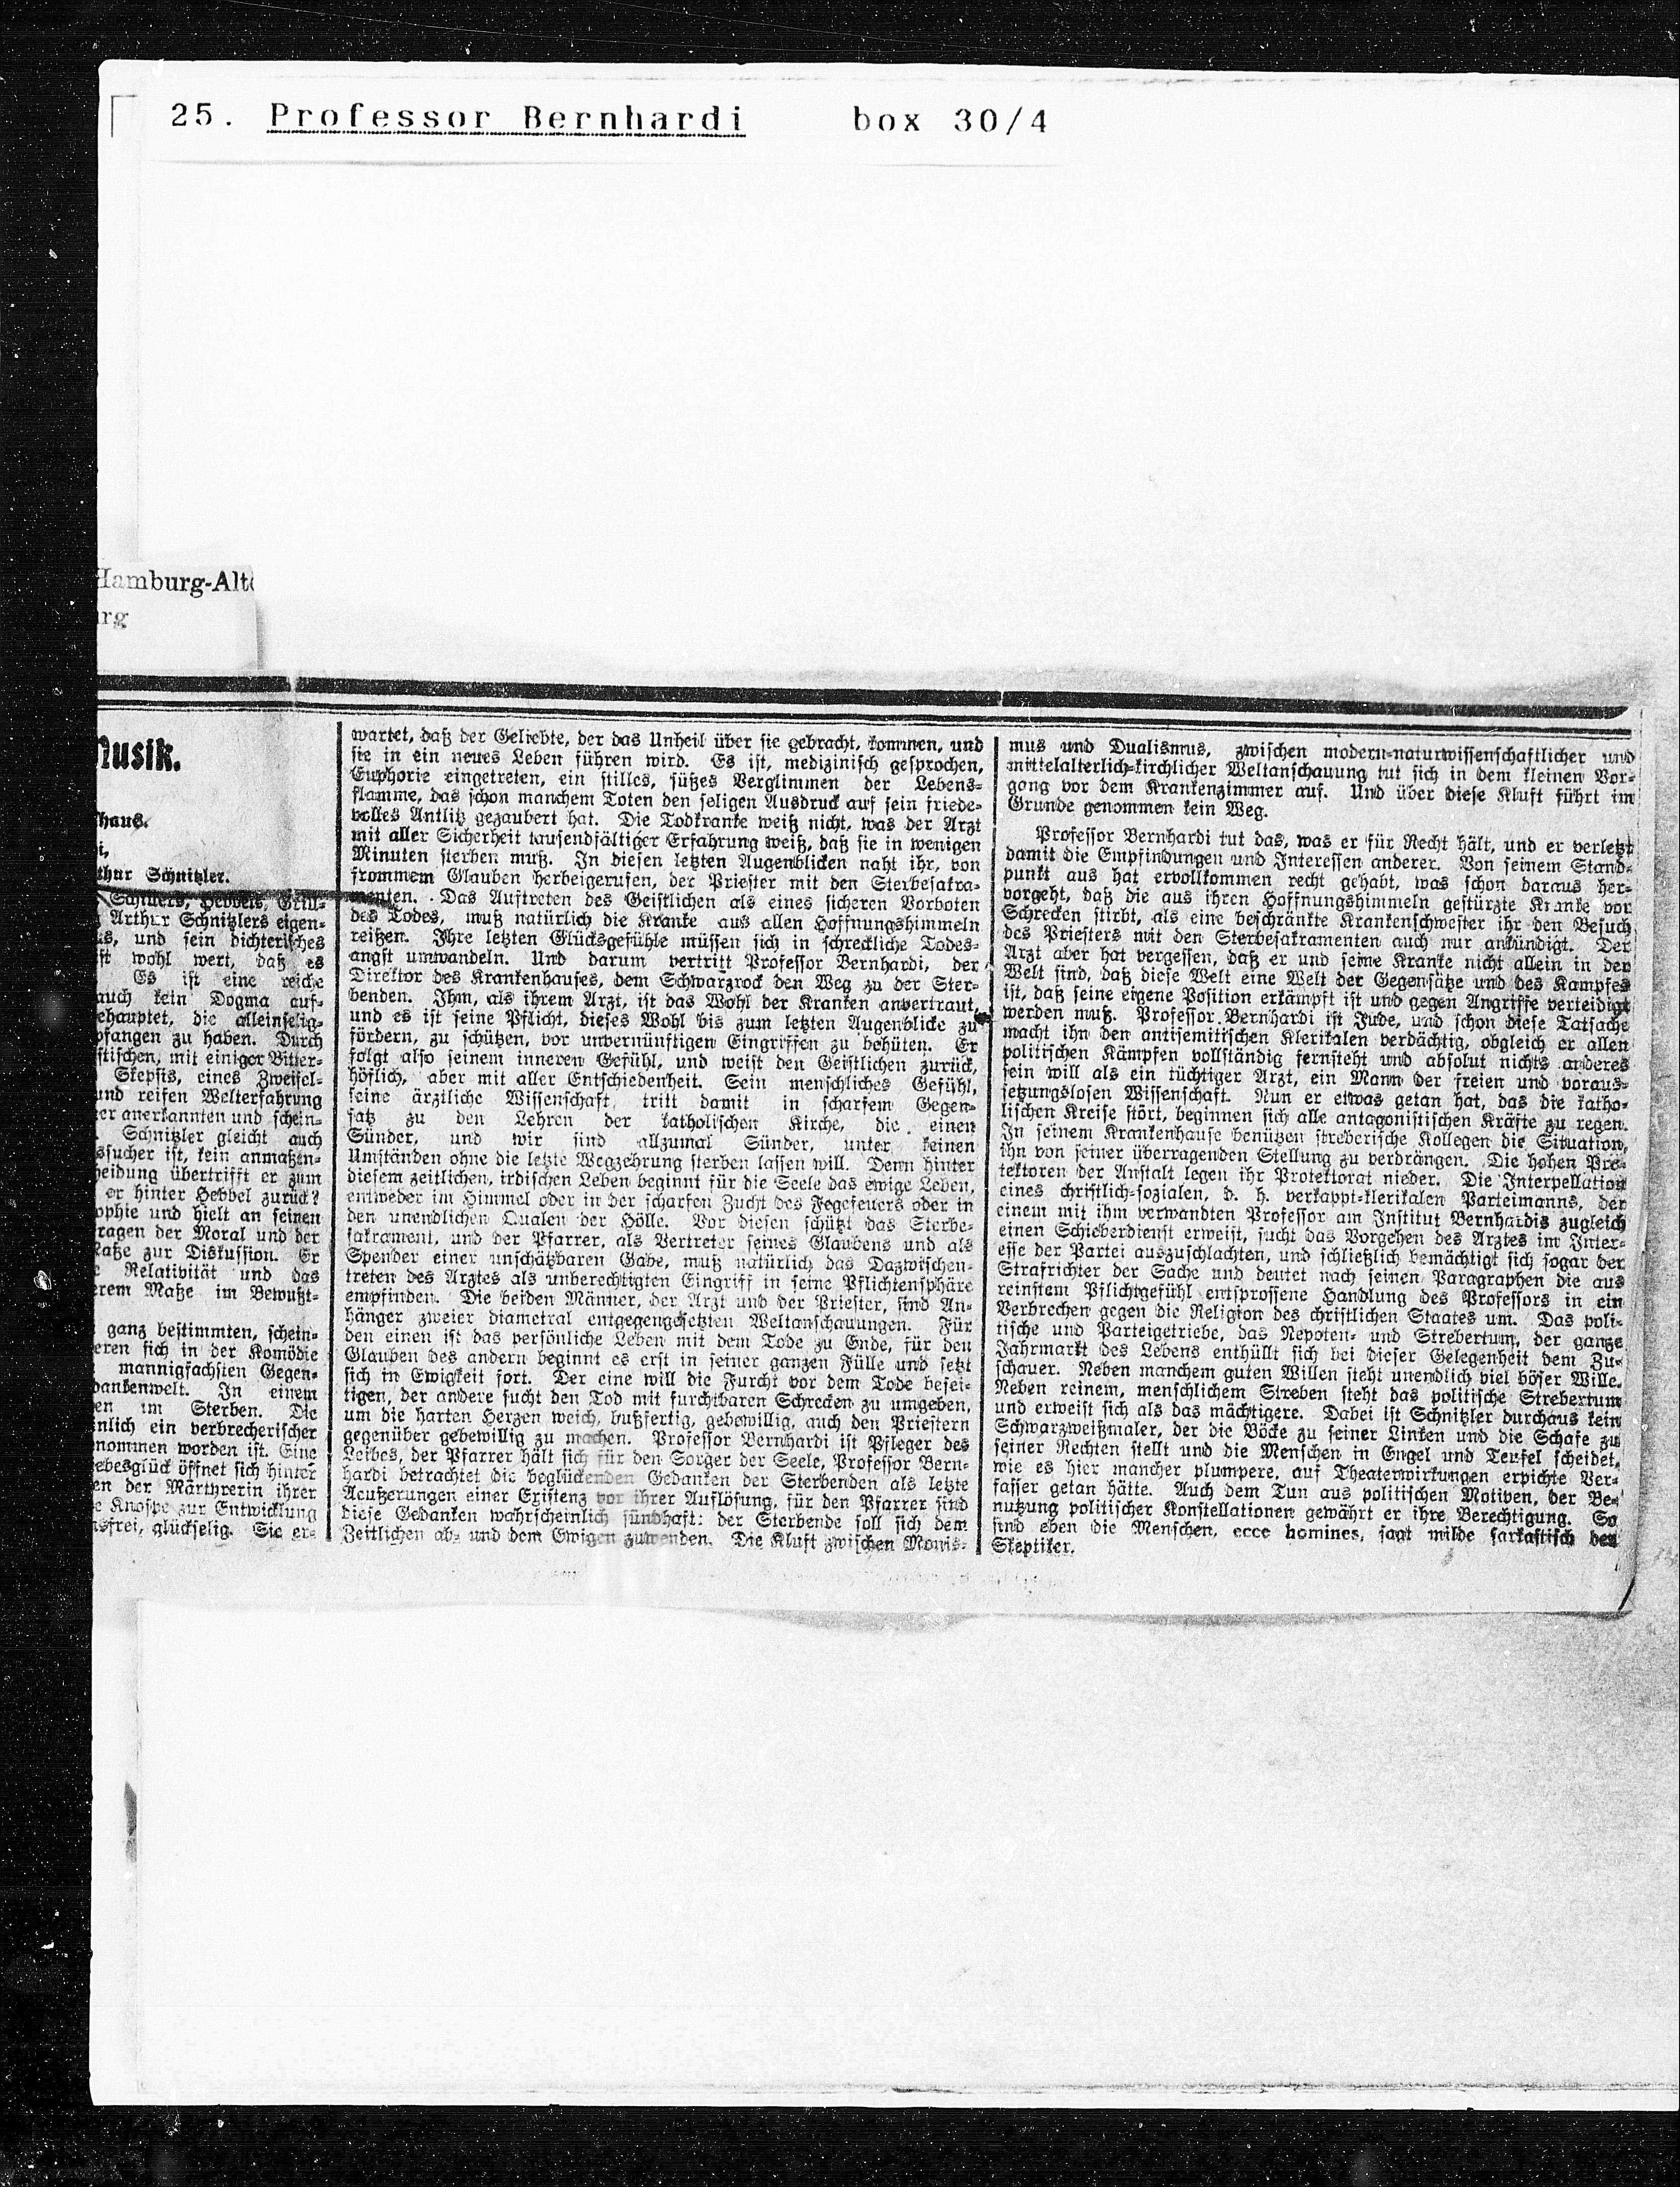 25. Professor Bernhardi box 30/4
Hamburg-Alto
urg
Musik.
haus.
i,
thur Schnitzler.
Schillers, Hebbels, Grill-
Arthur Schnitzlers eigen-
is, und sein dichterisches
ist wohl wert, daß es
Es ist eine reiche
auch kein Dogma auf-
ehauptet, die alleinselig-
pfangen zu haben. Durch
stischen, mit einiger Bitter-
Skepsis, eines Zweifel-
und reifen Welterfahrung
er anerkannten und schein-
Schnitzler gleicht auch
ssucher ist, kein anmaßen-
heidung übertrifft er zum
er hinter Hebbel zurück?
ophie und hielt an seinen
ragen der Moral und der
Maße zur Diskussion. Er
e Relativität und das
erem Maße im Bewußt-
ganz bestimmten, schein-
eren sich in der Komödie
mannigfachsten Gegen-
dankenwelt. In einem
en im Sterben. Die
nlich ein verbrecherischer
nommen worden ist. Eine
ebesglück öffnet sich hinter
en der Märtyrerin ihrer
e Knospe zur Entwicklung
nsfrei, glückselig. Sie er-
wartet, daß der Geliebte, der das Unheil über sie gebracht, kommen, und
sie in ein neues Leben führen wird. Es ist, medizinisch gesprochen,
Euphorie eingetreten, ein stilles, süßes Verglimmen der Lebens-
flamme, das schon manchem Toten den seligen Ausdruck auf sein friede-
volles Antlitz gezaubert hat. Die Todkranke weiß nicht, was der Arzt
mit aller Sicherheit tausendfältiger Erfahrung weiß, daß sie in wenigen
Minuten sterben muß. In diesen letzten Augenblicken naht ihr, von
frommem Glauben herbeigerufen, der Priester mit den Sterbesakra-
menten. Das Auftreten des Geistlichen als eines sicheren Vorboten
des Todes, muß natürlich die Kranke aus allen Hoffnungshimmeln
reißen. Ihre letzten Glücksgefühle müssen sich in schreckliche Todes-
angst umwandeln. Und darum vertritt Professor Bernhardi, der
Direktor des Krankenhauses, dem Schwarzrock den Weg zu der Ster-
benden. Ihm, als ihrem Arzt, ist das Wohl der Kranken anvertraut,
und es ist seine Pflicht, dieses Wohl bis zum letzten Augenblicke zu
fördern, zu schützen, vor unvernünftigen Eingriffen zu behüten. Er
folgt also seinem inneren Gefühl, und weist den Geistlichen zurück,
höflich, aber mit aller Entschiedenheit. Sein menschliches Gefühl,
seine ärztliche Wissenschaft, tritt damit in scharfem Gegen-
satz zu den Lehren der katholischen Kirche, die einen
Sünder, und wir sind allzumal Sünder, unter keinen
Umständen ohne die letzte Wegzehrung sterben lassen will. Denn hinter
diesem zeitlichen, irdischen Leben beginnt für die Seele das ewige Leben,
entweder im Himmel oder in der scharfen Zucht des Fegefeuers oder in
den unendlichen Qualen der Hölle. Vor diesen schützt das Sterbe-
sakrament, und der Pfarrer, als Vertreter seines Glaubens und als
Spender einer unschätzbaren Gabe, muß natürlich das Dazwischen-
treten des Arztes als unberechtigten Eingriff in seine Pflichtensphäre
empfinden. Die beiden Männer, der Arzt und der Priester, sind An-
hänger zweier diametral entgegengesetzten Weltanschauungen. Für
den einen ist das persönliche Leben mit dem Tode zu Ende, für den
Glauben des andern beginnt es erst in seiner ganzen Fülle und setzt
sich in Ewigkeit fort. Der eine will die Furcht vor dem Tode besei-
tigen, der andere sucht den Tod mit furchtbaren Schrecken zu umgeben,
um die harten Herzen weich, bußfertig, gebewillig, auch den Priestern
gegenüber gebewillig zu machen. Professor Bernhardi ist Pfleger des
Leibes, der Pfarrer hält sich für den Sorger der Seele, Professor Bern-
hardi betrachtet die beglückenden Gedanken der Sterbenden als letzte
Aeußerungen einer Existenz vor ihrer Auflösung, für den Pfarrer sind
diese Gedanken wahrscheinlich sündhaft: der Sterbende soll sich dem
Zeitlichen ab- und dem Ewigen zuwenden. Die Kluft zwischen Monis-
mus und Dualismus, zwischen modern-naturwissenschaftlicher und
mittelalterlich-kirchlicher Weltanschauung tut sich in dem kleinen Vor-
gang vor dem Krankenzimmer auf. Und über diese Kluft führt im
Grunde genommen kein Weg.
Professor Bernhardi tut das, was er für Recht hält, und er verletzt
damit die Empfindungen und Interessen anderer. Von seinem Stand-
punkt aus hat ervollkommen recht gehabt, was schon daraus her-
vorgeht, daß die aus ihren Hoffnungshimmeln gestürzte Kranke vor
Schrecken stirbt, als eine beschränkte Krankenschwester ihr den Besuch
des Priesters mit den Sterbesakramenten auch nur ankündigt. Der
Arzt aber hat vergessen, daß er und seine Kranke nicht allein in der
Welt sind, daß diese Welt eine Welt der Gegensätze und des Kampfes
ist, daß seine eigene Position erkämpft ist und gegen Angriffe verteidigt
werden muß. Professor Bernhardi ist Jude, und schon diese Tatsache
macht ihn den antisemitischen Klerikalen verdächtig, obgleich er allen
politischen Kämpfen vollständig fernsteht und absolut nichts anderes
sein will als ein tüchtiger Arzt, ein Mann der freien und voraus-
setzungslosen Wissenschaft. Nun er etwas getan hat, das die katho-
lischen Kreise stört, beginnen sich alle antagonistischen Kräfte zu regen.
In seinem Krankenhause benützen streberische Kollegen die Situation,
ihn von seiner überragenden Stellung zu verdrängen. Die hohen Pro-
tektoren der Anstalt legen ihr Protektorat nieder. Die Interpellation
eines christlich-sozialen, d. h. verkappt-klerikalen Parteimanns, der
einem mit ihm verwandten Professor am Institut Bernhardis zugleich
einen Schieberdienst erweist, sucht das Vorgehen des Arztes im Inter-
esse der Partei auszuschlachten, und schließlich bemächtigt sich sogar der
Strafrichter der Sache und deutet nach seinen Paragraphen die aus
reinstem Pflichtgefühl entsprossene Handlung des Professors in ein
Verbrechen gegen die Religion des christlichen Staates um. Das poli-
tische und Parteigetriebe, das Nepoten- und Strebertum, der ganze
Jahrmarkt des Lebens enthüllt sich bei dieser Gelegenheit dem Zu-
schauer. Neben manchem guten Willen steht unendlich viel böser Wille.
Neben reinem, menschlichem Streben steht das politische Strebertum
und erweist sich als das mächtigere. Dabei ist Schnitzler durchaus kein
Schwarzweißmaler, der die Böcke zu seiner Linken und die Schafe zu
seiner Rechten stellt und die Menschen in Engel und Teufel scheidet,
wie es hier mancher plumpere, auf Theaterwirkungen erpichte Ver-
fasser getan hätte. Auch dem Tun aus politischen Motiven, der Be-
nutzung politischer Konstellationen gewährt er ihre Berechtigung. So
sind eben die Menschen, ecce homines, sagt milde sarkastisch der
Skeptiker.